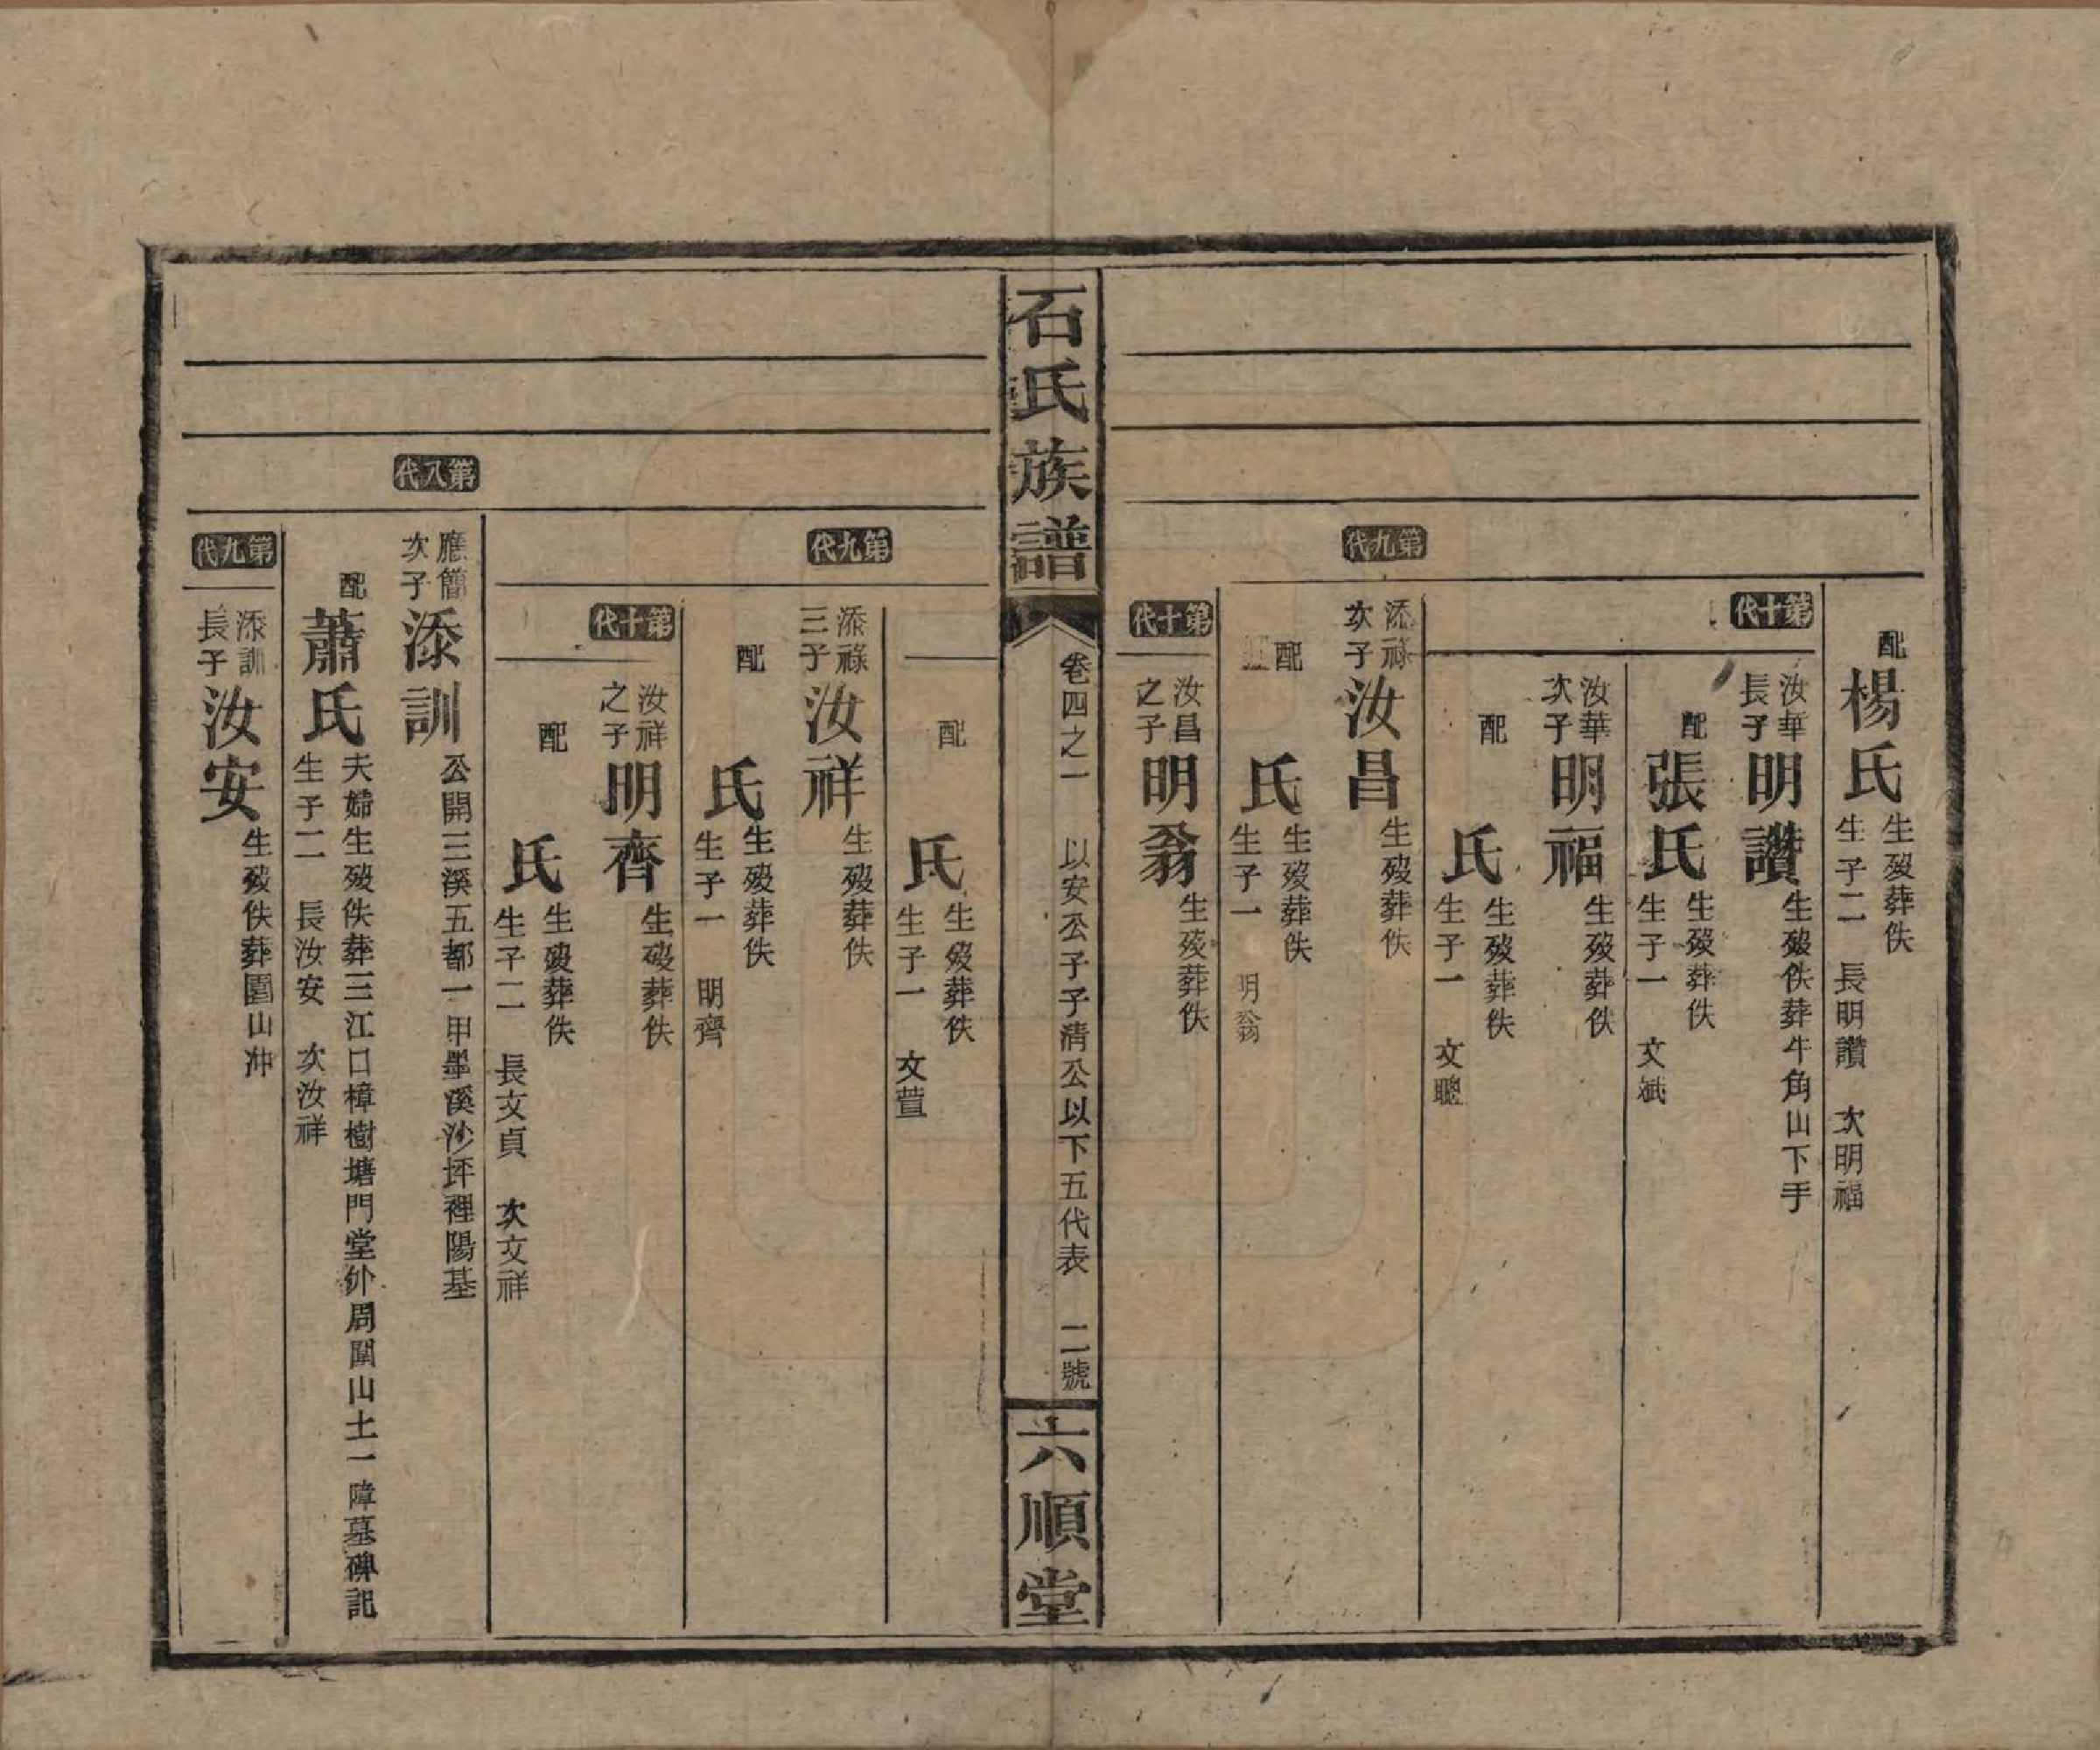 配
楊氏
生歿葬佚
生子二　長明讚　次明福
第十代
汝華
長子
明讚
生歿佚葬牛角山下手
配
張氏
生歿葬佚
生子一　文斌
汝華
次子
明福
生歿葬佚
配
氏
生歿葬佚
生子一　文聰
第九代
添祿
次子
汝昌
生歿葬佚
配
氏
生歿葬佚
生子一　明翁
第十代
汝昌
之子
明翁
生歿葬佚
石氏族譜
卷四之一　以安公子子清公以下五代表　二號
六順堂
配
氏
生歿葬佚
生子一　文萱
第九代
添祿
三子
汝祥
生歿葬佚
配
氏
生歿葬佚
生子一　明齊
第十代
汝祥
之子
明齊
生歿葬佚
配
氏
生歿葬佚
生子二　長文貞　次文祥
第八代
應簡
次子
添訓
公開三溪五都一甲墨溪沙坪裡陽基
配
蕭氏
夫婦生歿佚葬三江口樟樹塘門堂外周圍山土一障墓碑記
生子二　長汝安　次汝祥
第九代
添訓
長子
汝安
生歿佚葬園山沖